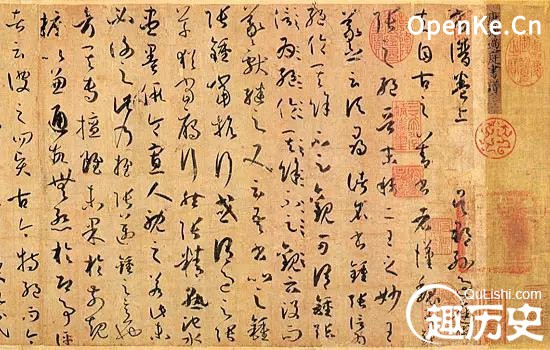 OpenKe.Cn
書譜卷上 吳郡孫過庭撰
夫自古之善書者漢魏有鍾
張之絕晉末稱二王之妙王
羲之云頃尋諸名書鍾張信為
絕倫其餘不足觀可謂鍾張
信為絕倫其餘不足觀云沒而
羲獻繼之又云吾書比之鍾
張鍾當抗行或謂過之張
草猶當雁行然張精熟池水
盡墨假令寡人耽之若此未
必謝之此乃推張邁鍾之意也
考其專擅雖未果於前規
摭以兼通故無慚於即事評
者云彼之四賢古今特絕而今
QuLishi.com
趣历史